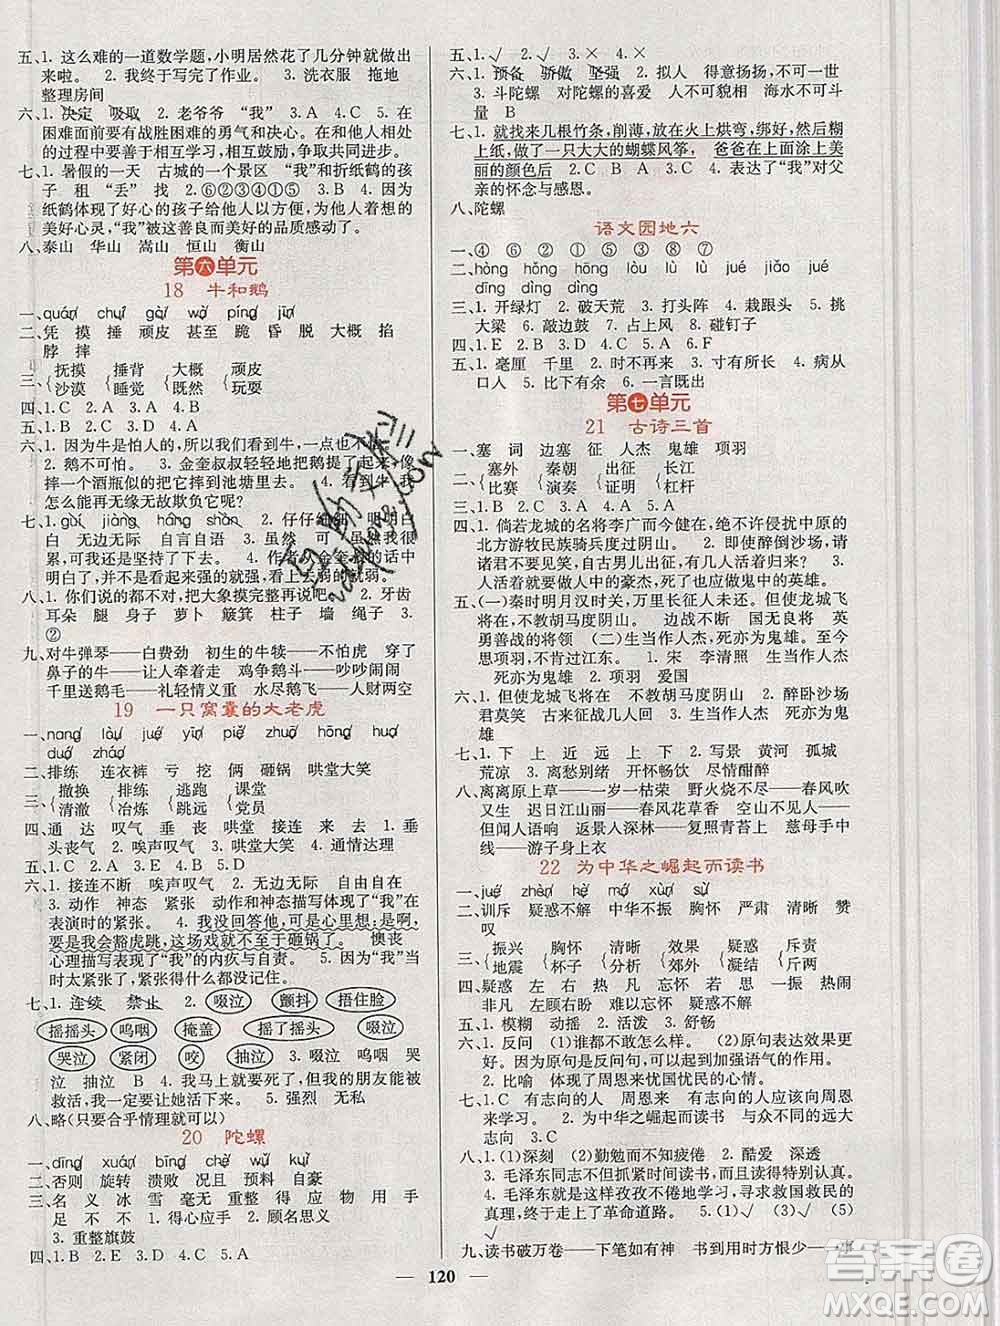 五、1. 这么难的一道数学题,小明居然花了几分钟就做出
来啦。 2. 我终于写完了作业。 3. 洗衣服 拖地
整理房间
六、1. 决定 吸取 2. 老爷爷 “我” 3. A 4. C 5. 在
困难面前要有战胜困难的勇气和决心。在和他人相处
的过程中要善于相互学习,相互鼓励,争取共同进步。
七、1. 暑假的一天 古城的一个景区 “我”和折纸鹤的孩
子 租 “丢” 找 2. ⑥②③④①⑤ 3. B 4. 因为
纸鹤体现了好心的孩子给他人以方便,给他人着想的
美好心灵,“我”被这善良而美好的品质感动了。
八、泰山 华山 嵩山 恒山 衡山
第六单元
18 牛和鹅
一、quán chuí gài wò píng jīn
二、凭 摸 捶 顽皮 甚至 跪 昏 脱 大概 掐
脖 摔
三、{抚摸 {捶背 {大概 {顽皮
{沙漠 {睡觉 {感慨 {玩耍
四、1. C 2. A 3. A 4. B
五、1. B 2. A 3. D 4. C
六、1. 因为牛是怕人的,所以我们看到牛,一点也不怕。
2. 鹅不可怕。 3. 金奎叔叔轻轻地把鹅提了起来,像
摔一个酒瓶似的把它摔到池塘里去。 4. 看到鹅,我
怎么能再无缘无故欺负它呢?
七、1. guī jiàng hāng shàn 2. 仔仔细细 明明白
白 无边无际 自言自语 3. 虽然 可 我很害怕,但
是,我还是坚持下来了。 4. 作者从金奎叔的话中
明白了,并不是强的就强,弱的就弱。
八、1. 你们说的都不对,把大象摸完整再说吧。 2. 牙齿
耳朵 腿 身子 萝卜 簸箕 柱子 墙 绳子 3.
②
九、对牛弹琴——白费劲 初生的牛犊——不怕虎 穿了
鼻子的牛——让人牵着走 鸡争鹅斗——吵吵闹闹
千里送鹅毛——礼轻情义重 水尽鹅飞——人财两空
19 一只窝囊的大老虎
一、nang lòu jué yīn piě zhuō hōng huá
duó zháo
二、排练 连衣裤 亏 挖 俩 砸锅 哄堂大笑
三、{撤换 {排练 {逃跑 {课堂
{清澈 {冶炼 {跳远 {党员
四、通 达 叹气 垂 丧 哄堂 接连 来 去 1. 垂
头丧气 2. 唉声叹气 3. 哄堂大笑 4. 通情达理
五、1. C 2. A 3. E 4. D 5. B
六、1. 接连不断 唉声叹气 2. 无边无际 自由自在
3. 动作 神态 紧张 动作和神态描写体现了“我”在
表演时的紧张。 4. 我没回答他,可是心里想:是啊,
要是我会豁虎跳,这场戏就不至于砸锅了。 懊丧
心理描写表现了“我”的内疚与自责。 5. 因为“我”当
时太紧张了,紧张得什么都没记住。
七、1. 连续 禁止 2. 啜泣 颤抖 捂住脸
摇摇头 呜咽 掩盖 摇了摇头 啜泣
哭泣 紧闭 咬 抽泣 3. 啜泣 呜咽 哭
泣 抽泣 B 4. 我马上就要死了,但我的朋友能被
救活,我一定要让她活下来。 5. 强烈 无私
八、略(只要合乎情理就可以)
20 陀螺
一、dīng xuán bīng chè wù kuī
二、否则 旋转 溃败 况且 预料 自豪
三、名 义 冰 雪 毫无 重整 得 应 物 用 手
足 不 不 1. 得心应手 2. 顾名思义
3. 重整旗鼓
四、1. B 2. C 3. A 4. D
五、1. √ 2. √ 3. × 4. ×
六、1. 预备 骄傲 坚强 2. 拟人 得意扬扬 不可一世
3. 斗陀螺 对陀螺的喜爱 人不可貌相 海水不可斗
量 B
七、1. 就找来几根竹条,削薄,放在火上烘弯,绑好,然后糊
上纸,做了一只大大的蝴蝶风筝, 爸爸在上面涂上美
丽的颜色后 2. C B 3. A C 4. 表达了“我”对父
亲的怀念与感恩。
八、陀螺
语文园地六
一、④ ⑥ ② ① ⑤ ③ ⑧ ⑦
二、hòng hǒng hōng lòu lù lù jué jiǎo jué
dīng dìng dīng
三、1. 开绿灯 2. 破天荒 3. 打头阵 4. 栽跟头 5. 挑
大梁 6. 敲边鼓 7. 占上风 8. 碰钉子
四、1. E 2. B 3. D 4. C 5. A 6. F
五、1. 毫厘 千里 2. 时不再来 3. 寸有所长 4. 病从
口入 5. 比下有余 6. 一言既出
第七单元
21 古诗三首
一、塞 词 边塞 征 人杰 鬼雄 项羽
二、{塞外 {秦朝 {出征 {长江
{比赛 {演奏 {证明 {杠杆
三、1. B 2. C 3. D 4. A
四、1. 倘若龙城的名将李广而今健在,绝不许侵扰中原的
北方游牧民族骑兵度过阴山。 2. 即使醉倒沙场,请
诸君不要见笑,自古男儿出征,有几人活着归回? 3.
人活着就要做人中的豪杰,死了也应做鬼中的英雄。
五、(一)秦时明月汉时关,万里长征人未还。但使龙城飞
将在,不教胡马度阴山。 边战不断 国无良将 英
勇善战的将领 (二)生当作人杰,死亦为鬼雄。至今
思项羽,不肯过江东。 1. 宋 李清照 生当作人杰
死亦为鬼雄 2. 项羽 爱国
六、1. 但使龙城飞将在 不教胡马度阴山 2. 醉卧沙场
君莫笑 古来征战几人回 3. 生当作人杰 死亦为鬼
雄
七、1. 下 上 近 远 上 下 2. 写景 黄河 孤城
荒凉 3. 离愁别绪 开怀畅饮 尽情酣醉
八、离离原上草——一岁一枯荣 野火烧不尽——春风吹
又生 迟日江山丽——春风花草香 空山不见人——
但闻人语响 返景入深林——复照青苔上 慈母手中
线——游子身上衣
22 为中华之崛起而读书
一、jué zhèn hè mó xùn sù
二、训斥 疑惑不解 中华不振 胸怀 严肃 清晰 赞
叹
三、{振兴 {胸怀 {清晰 {效果 {疑惑 {斥责
{地震 {杯子 {分析 {郊外 {凝结 {斤两
四、疑惑 左 右 热 凡 忘怀 若 思 一振 所闻
非凡 左顾右盼 难以忘怀 疑惑不解
五、1. 模糊 动摇 2. 活泼 3. 舒畅
六、1. 反问 (1)谁都不敢怎么样。 (2)原句表达效果更
好。因为原句是反问句,可以起到加强语气的作用。
2. 比喻 体现了周恩来忧国忧民的心情。
七、1. C 2. 有志向的人 周恩来 有志向的人应该向周恩
来学习。 2. 为中华之崛起而读书 与众不同的远大
志向 3. C
八、1. (1)深刻 (2)勤勉而不知疲倦 2. 酷爱 深透
3. 毛泽东同志不但抓紧时间读书,而且读书特别认真。
4. 毛泽东就是这样孜孜不倦地学习,寻求救国救民的
真理,终于走上了革命道路。 5. (1)√ (3)√ (5)
√
九、读书破万卷——下笔如有神 书到用时方恨少——
120
答案圈
MXQE.COM